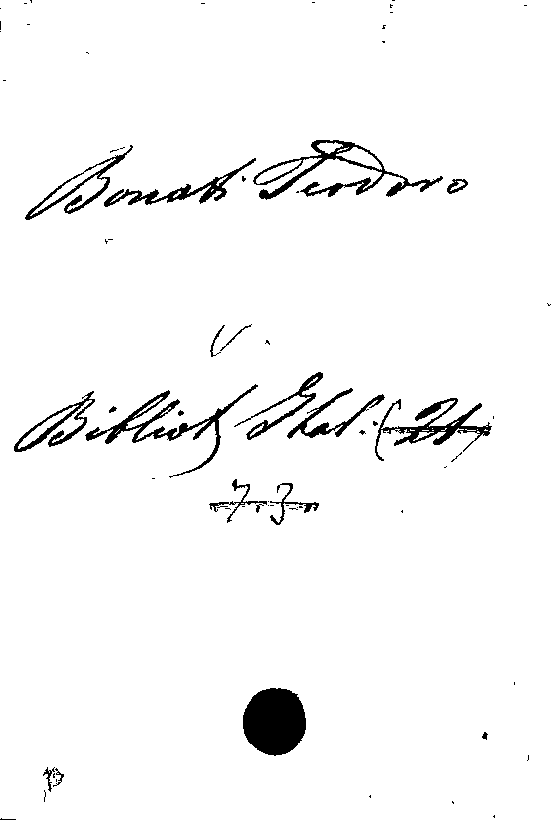 Bonati Teodoro
V.
Biblioth Ital. (21)
7.3.